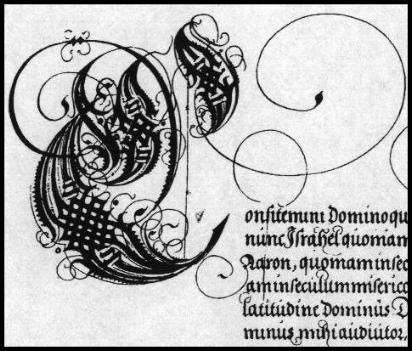 Confitemini Domino qu
nunc Israhel quoniam
Aaron, quoniam in sec
am in seculum miserico
latitudine Dominus D
minus mihi adiutor,